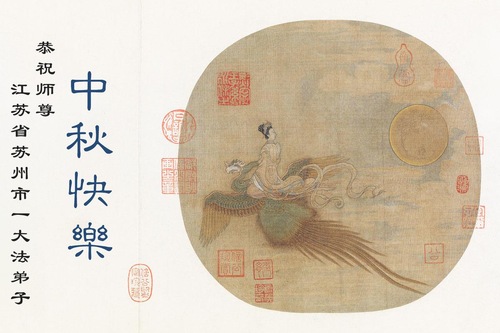 恭祝师尊
江苏省苏州市一大法弟子
中秋快樂